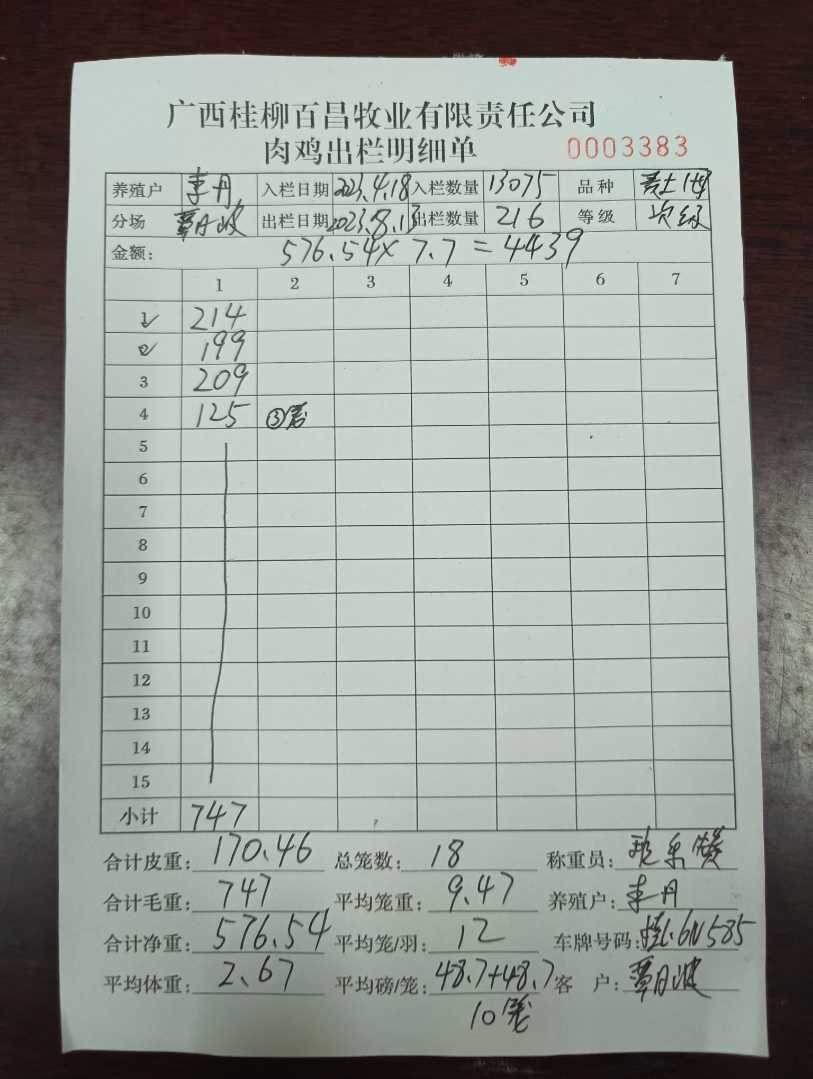 广西桂柳百昌牧业有限责任公司
肉鸡出栏明细单 0003383
养殖户 李丹 入栏日期 2023.4.18 入栏数量 13075 品种
分场 覃月波 出栏日期 2023.8.13 出栏数量 216 等级 次级
金额: 576.54×7.7=4439
1 2 3 4 5 6 7
1 214
2 199
3 209
4 125 ③
5
6
7
8
9
10
11
12
13
14
15
小计 747
合计皮重: 170.46 总笼数: 18 称重员:
合计毛重: 747 平均笼重: 9.47 养殖户: 李丹
合计净重: 576.54 平均笼/羽: 12 车牌号码: 6N585
平均体重: 2.67 平均磅/笼: 48.7+48.7 客 户: 覃月波
10笼